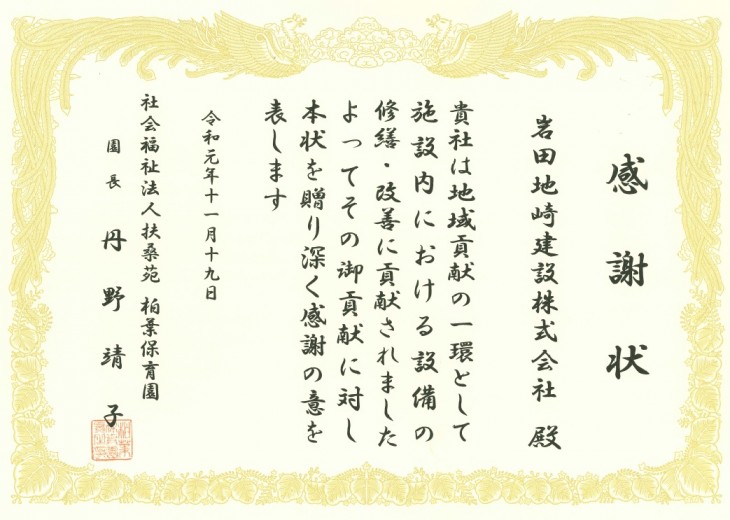 感謝状
岩田地崎建設株式会社 殿
貴社は地域貢献の一環として
施設内における設備の
修繕・改善に貢献されました
よってその御貢献に対し
本状を贈り深く感謝の意を
表します
令和元年十一月十九日
社会福祉法人扶桑苑 柏葉保育園
園長 丹野靖子